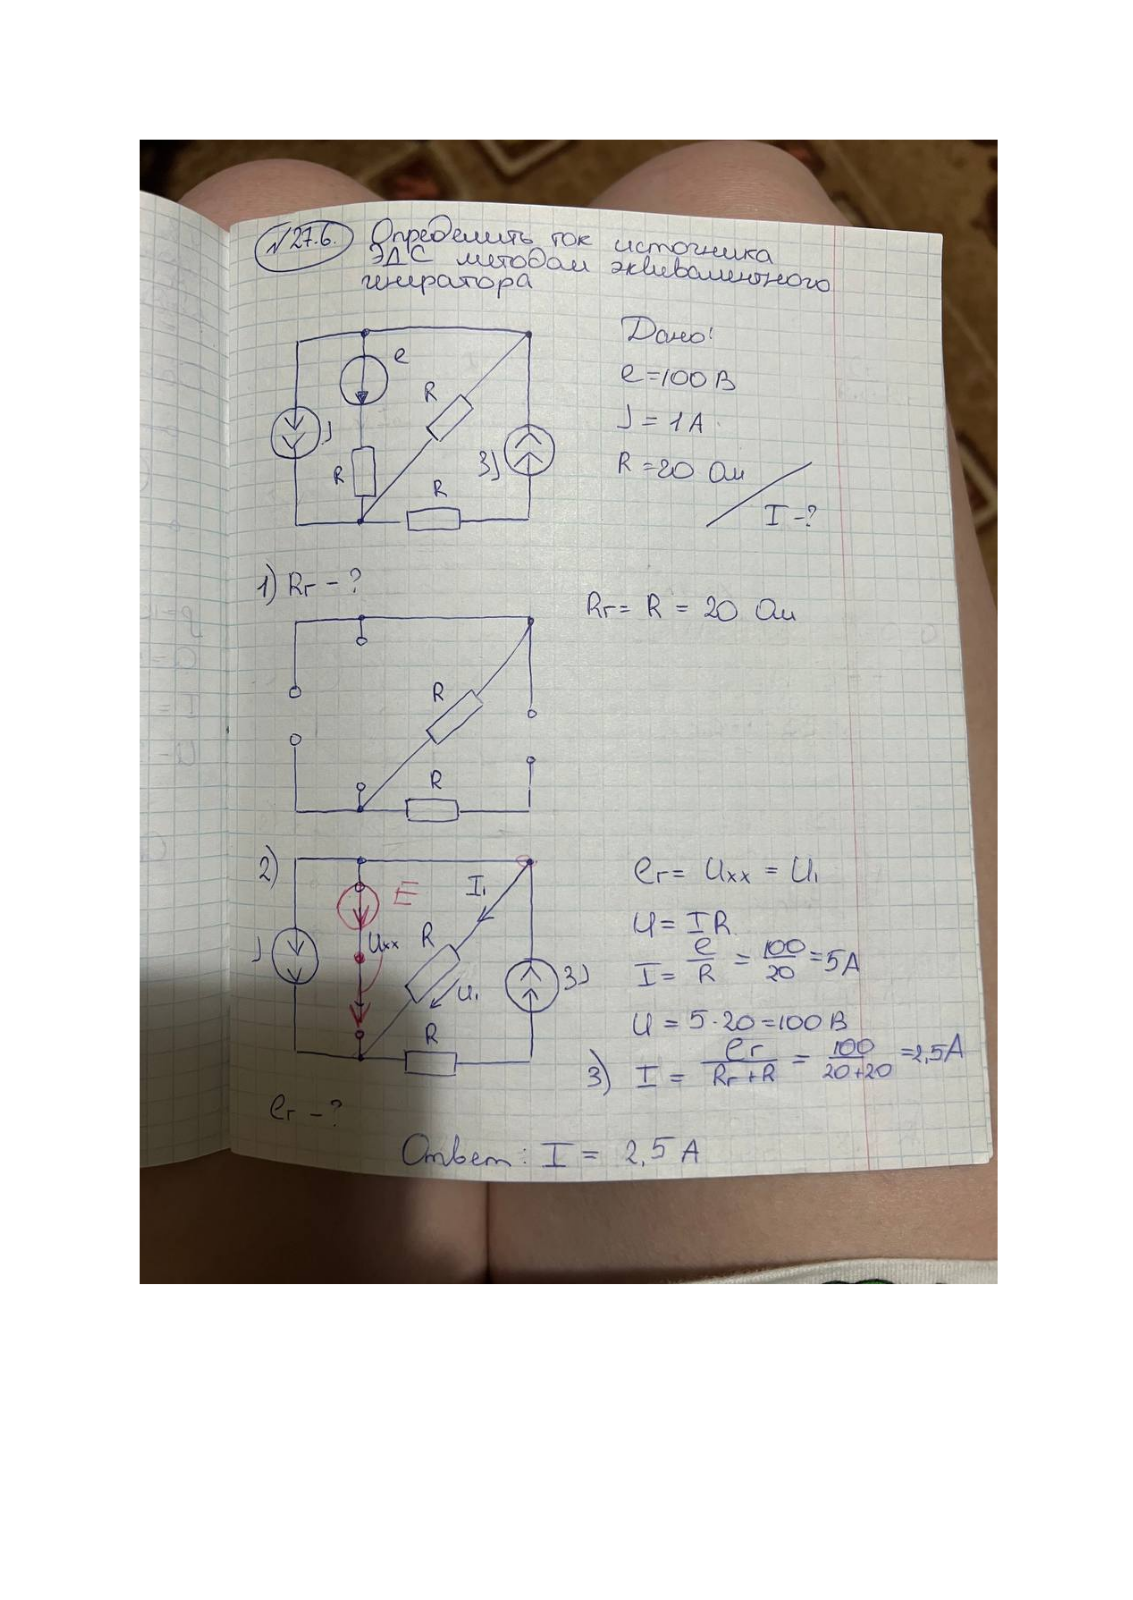 N27.6. Определить ток источника
ЭДС методом эквивалентного
генератора
Дано:
e=100 В
J = 1 А
R =20 Ом
I -?
e
J
R
R
R
3J
1) Rг - ?
Rг = R = 20 Ом
R
R
2)
E
I₁
J
Uxx
R
U₁
3J
R
eг -?
eг = Uxx = U₁
U = IR
I = e/R = 100/20 = 5А
U = 5·20=100 В
3) I = eг/(Rг+R) = 100/(20+20) =2,5А
Ответ: I = 2,5 А